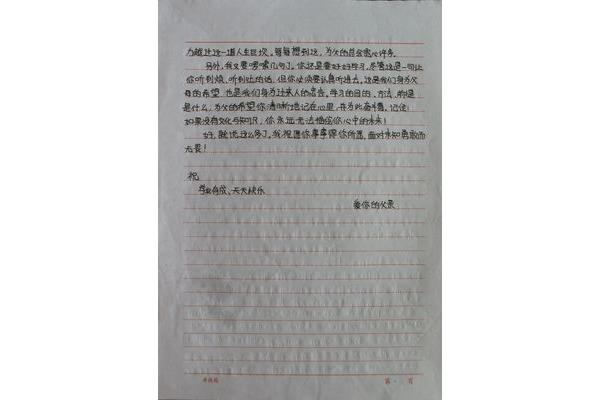 力越过这一道人生巨坎。每每想到这,为父的自会宽心许多。
另外,我又要啰嗦几句了。你还是要好好学习,尽管这是一句让
你听到烦、听到吐的话,但你必须要认真听进去。这是我们身为父
母的希望,也是我们身为过来人的忠告。学习的目的、方法、的是
是什么,为父的希望你清晰地记在心里,并为此奋斗。记住:
如果没有文化与知识,你永远无法描绘你心中的未来!
好,就说这么多了。我祝愿你事事得你所愿,面对未知勇敢而
无畏!
祝
学业有成、天天快乐
爱你的父亲
第 页